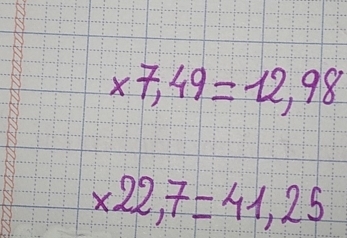 ×7,49=12,98
×22,7=41,25